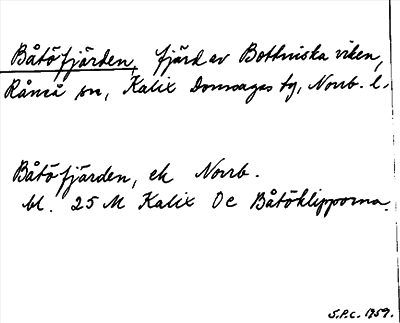 Båtöfjärden, fjärd av Bottniska viken,
Råneå sn, Kalix Domsagas tg, Norrb. l.
Båtöfjärden, ek Norrb.
bl. 25 M Kalix Oc Båtöklipporna.
S.P.C. 1959.